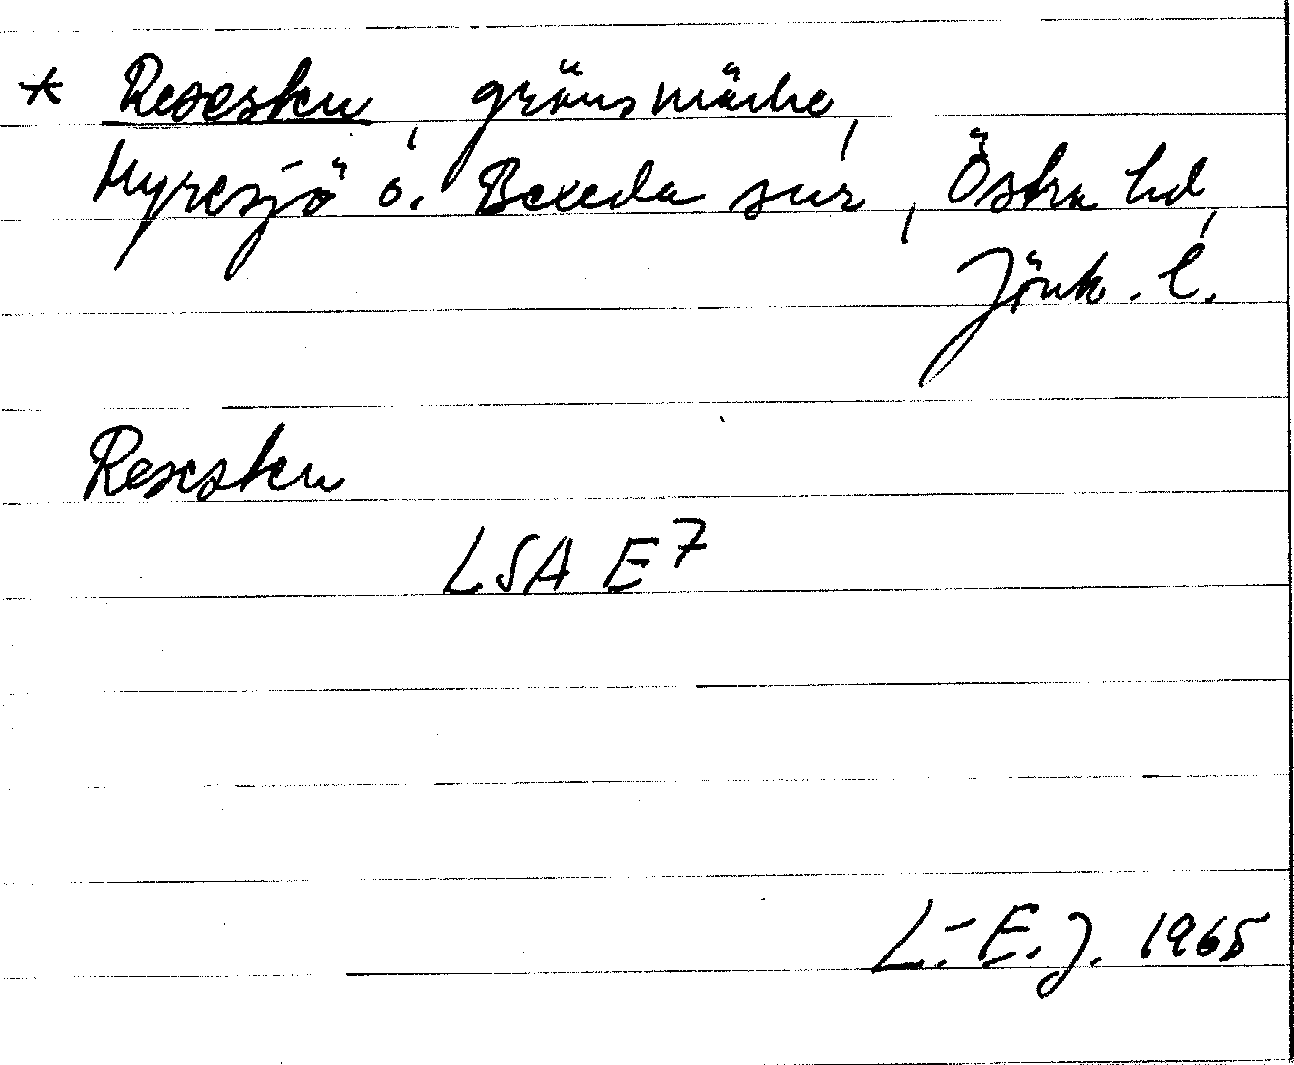 * Resesten, gränsmärke,
Myresjö o. Bexeda snr, Östra hd,
Jönk. l.
Resesten
LSA E7
L.-E. J. 1965